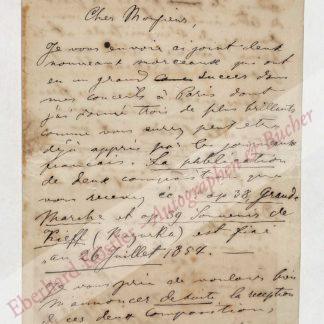 Cher Monsieur,
Je vous envoie ci joint deux
nouveaux morceaux qui ont
eu un grand succès dans
mes concerts à Paris dont
j'ai donné trois de plus brillants
comme vous aurez peut être
déjà appris par les journaux
français. La publication
de deux compositions que
vous recevez op 38 Grande
Marche et op 39 Souvenir de
Kieff (Mazurka) est fixé
au 26 juillet 1857. —
Je vous prie de vouloir bien
m'annoncer de suite la reception
de ces deux compositions,
Eberhard Köstler Autographen & Bücher